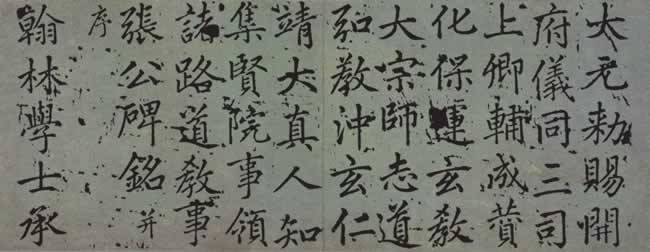 大元勑賜開
府儀同三司
上卿輔成賛
化保運玄教
大宗師志道
弘教沖玄仁
靖大真人知
集賢院事領
諸路道教事
張公碑銘并
序
翰林學士承